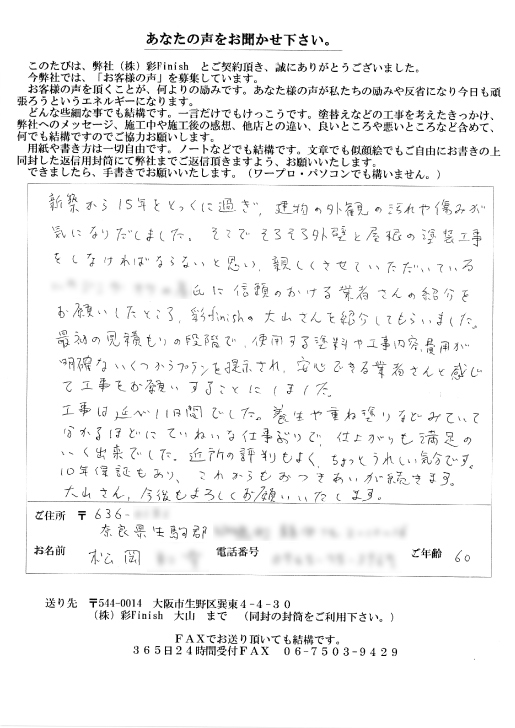 あなたの声をお聞かせ下さい。
このたびは、弊社（株）彩Finish とご契約頂き、誠にありがとうございました。
今弊社では、「お客様の声」を募集しています。
お客様の声を頂くことが、何よりの励みです。あなた様の声が私たちの励みや反省になり今日も頑
張ろうというエネルギーになります。
どんな些細な事でも結構です。一言だけでもけっこうです。塗替えなどの工事を考えたきっかけ、
弊社へのメッセージ、施工中や施工後の感想、他店との違い、良いところや悪いところなど含めて、
何でも結構ですのでご協力お願いします。
用紙や書き方は一切自由です。ノートなどでも結構です。文章でも似顔絵でもご自由にお書きの上
同封した返信用封筒にて弊社までご返信頂きますよう、お願いいたします。
できましたら、手書きでお願いいたします。（ワープロ・パソコンでも構いません。）
新築から15年をとっくに過ぎ、建物の外観の汚れや傷みが
気になりだしました。そこでそろそろ外壁と屋根の塗装工事
をしなければならないと思い、親しくさせていただいている
氏に信頼のかける業者さんの紹介を
お願いしたところ、彩finishの大山さんを紹介してもらいました。
最初の見積もりの段階で、使用する塗料や工事内容、費用が
明確ないくつかプランを提示され、安心できる業者さんと感じ
て工事をお願いすることにしました。
工事は延べ11日間でした。養生や重ね塗りなどみていて
分かるほどにていねいな仕事ぶりで、仕上がりも満足の
いく出来でした。近所の評判もよく、ちょっとうれしい気分です。
10年保証もあり、これからもおつきあいが続きます。
大山さん、今後もよろしくお願いいたします。
ご住所 〒636-
奈良県生駒郡
お名前 松岡 電話番号 ご年齢 60
送り先 〒544-0014 大阪市生野区巽東4-4-30
（株）彩Finish 大山 まで （同封の封筒をご利用下さい。）
FAXでお送り頂いても結構です。
365日24時間受付FAX 06-7503-9429